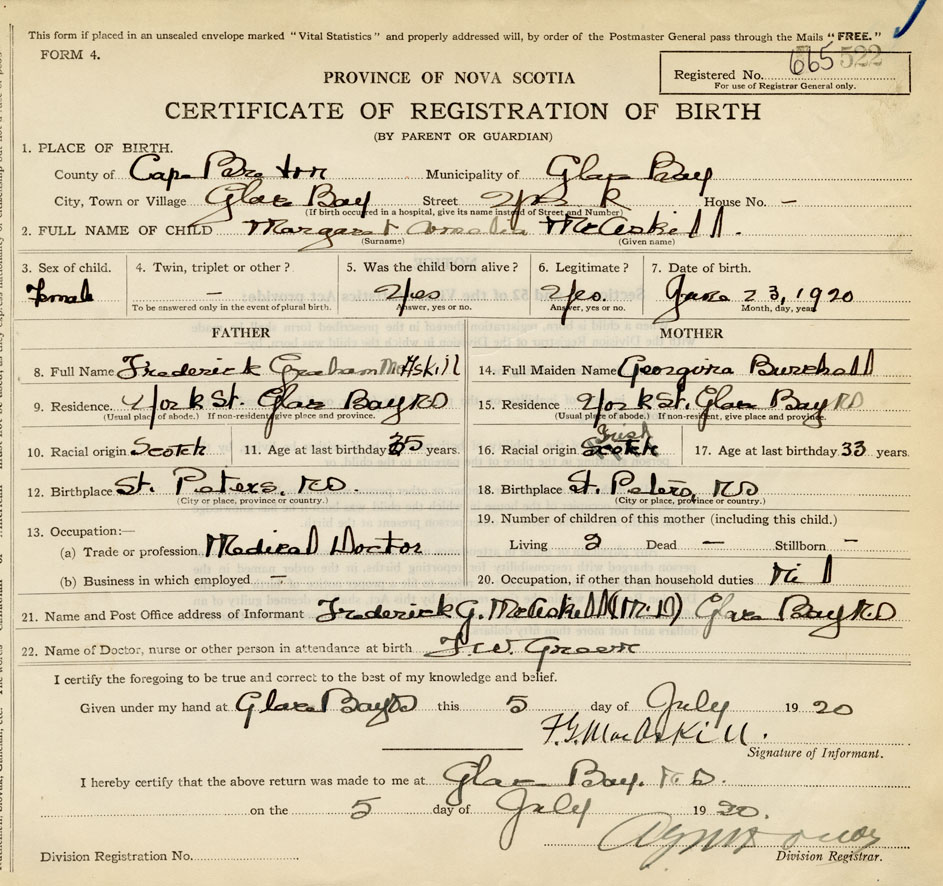 This form if placed in an unsealed envelope marked "Vital Statistics" and properly addressed will, by order of the Postmaster General pass through the Mails "FREE."
FORM 4.
PROVINCE OF NOVA SCOTIA
Registered No. 665 522
For use of Registrar General only.
CERTIFICATE OF REGISTRATION OF BIRTH
(BY PARENT OR GUARDIAN)
1. PLACE OF BIRTH.
County of Cape Breton Municipality of Glace Bay
City, Town or Village Glace Bay Street House No. -
(If birth occurred in a hospital, give its name instead of Street and Number)
2. FULL NAME OF CHILD Margaret Amelia McAskill.
(Surname) (Given name)
3. Sex of child. 4. Twin, triplet or other? 5. Was the child born alive? 6. Legitimate? 7. Date of birth.
Female - Yes Yes. June 23, 1920
To be answered only in the event of plural birth. Answer, yes or no. Answer, yes or no. Month, day, year
FATHER MOTHER
8. Full Name Frederick Graham McAskill 14. Full Maiden Name Georgina Burchell
9. Residence. York St. Glace Bay 15. Residence York St. Glace Bay
(Usual place of abode.) If non-resident give place and province. (Usual place of abode.) If non-resident, give place and province.
10. Racial origin Scotch 11. Age at last birthday 35 years. 16. Racial origin Irish Scotch 17. Age at last birthday 33 years.
12. Birthplace St. Peters, 18. Birthplace St. Peters,
(City or place, province or country.) (City or place, province or country.)
13. Occupation:— 19. Number of children of this mother (including this child.)
(a) Trade or profession Medical Doctor Living 2 Dead — Stillborn -
(b) Business in which employed - 20. Occupation, if other than household duties Nil
21. Name and Post Office address of Informant Frederick G. McAskill (M.D) Glace Bay
22. Name of Doctor, nurse or other person in attendance at birth Green
I certify the foregoing to be true and correct to the best of my knowledge and belief.
Given under my hand at Glace Bay this 5 day of July 1920
F. G. MacAskill.
Signature of Informant.
I hereby certify that the above return was made to me at Glace Bay.
on the 5 day of July 1920.
Division Registration No.
Division Registrar.